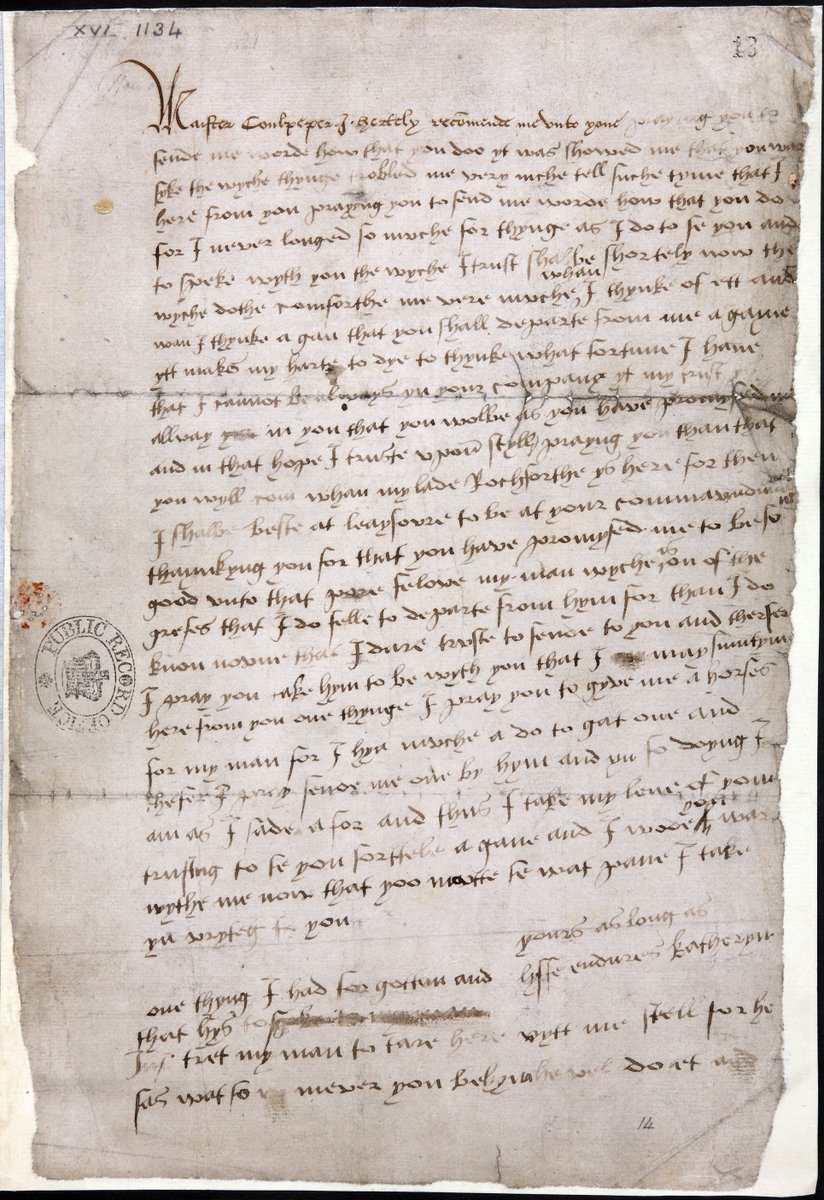 XVI 1134
13
Maister Coulpeper I hertely recomende me unto youe praying you to
sende me worde how that you doo yt was showed me that you was
syke the wyche thynge trobled me very muche tell suche tyme that I
here from you praying you to send me worde how that you do
for I never longed so muche for thynge as I do to se you and
to speke wyth you the wyche I trust shal be shortely now the
wyche dothe comforthe me vere muche whan I thynke of ett and
wan I thynke a gan that you shall departe from me agane
ytt makes my harte to dye to thynke what fortune I have
that I cannot be always yn your company yt my trust
allway in you that you wolbe as you have promysed me
and in that hope I truste upon styll prayng you than that
you wyll com whan my lade Rochforthe ys here for then
I shalbe beste at leaysoure to be at your commaundment
thaunkyng you for that you have promysed me to be so
good unto that pore felowe my man wyche is on of the
grefes that I do felle to departe from hym for than I do
know noone that I dare truste to sende to you and therfor
I pray you take hym to be wyth you that I may sumtym
here from you one thynge I pray you to gyve me a horse
for my man for I hyd muche a do to gat one and
thefer I pray sende me one by hym and yn so doyng I
am as I sade afor and thus I take my leve of you
trusting to se you shortele agane and I wode you war
wythe me now that yoo mytte se wat pane I take
yn wryteg to you
yours as long as
lyffe endures katheryn
one thyng I had forgotten and
that hys to
Ins tret my man to tare here wytt me stell for he
sas wat so mever you bed hym he wel do et and
14
PUBLIC RECORD OFFICE